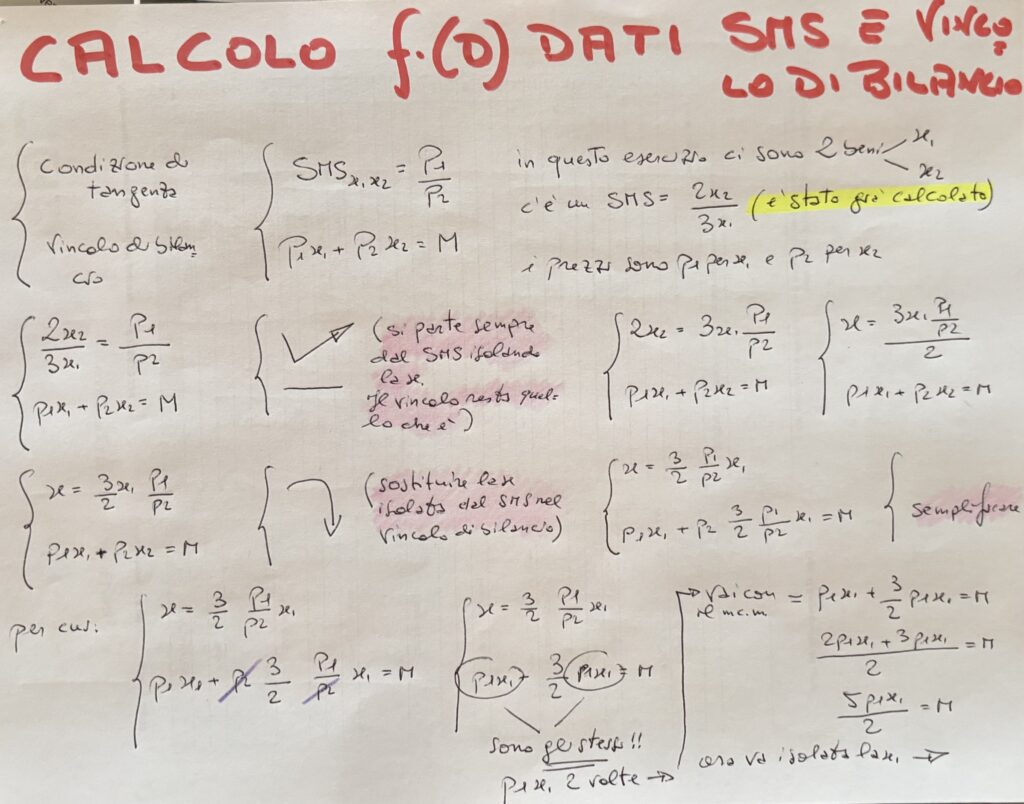 CALCOLO f.(D) DATI SMS E VINCO
LO DI BILANCIO
Condizione di
tangenza
Vincolo di bilan
cio
SMS x1x2 = P1/P2
P1x1 + P2x2 = M
in questo esercizio ci sono 2 beni x1
x2
c'è un SMS = 2x2/3x1 (è stato già calcolato)
i prezzi sono p1 per x1 e p2 per x2
2x2/3x1 = P1/P2
p1x1 + p2x2 = M
(si parte sempre
dal SMS isolando
la x.
Il vincolo resta quel-
lo che è)
2x2 = 3x1 P1/P2
p1x1 + p2x2 = M
x = 3x1 P1/P2 / 2
p1x1 + p2x2 = M
x = 3x1/2 P1/P2
p1x1 + p2x2 = M
(sostituire la x
isolata dal SMS nel
vincolo di bilancio)
x = 3/2 P1/P2 x1
p1x1 + p2 3/2 p1/p2 x1 = M
semplificare
per cui:
x = 3/2 P1/P2 x1
p1x1 + p2 3/2 P1/P2 x1 = M
x = 3/2 P1/P2 x1
p1x1 + 3/2 p1x1 = M
sono gli stessi!!
p1x1 2 volte →
→ vai con
il m.c.m = p1x1 + 3/2 p1x1 = M
2p1x1 + 3p1x1 / 2 = M
5p1x1 / 2 = M
ora va isolata la x1 →